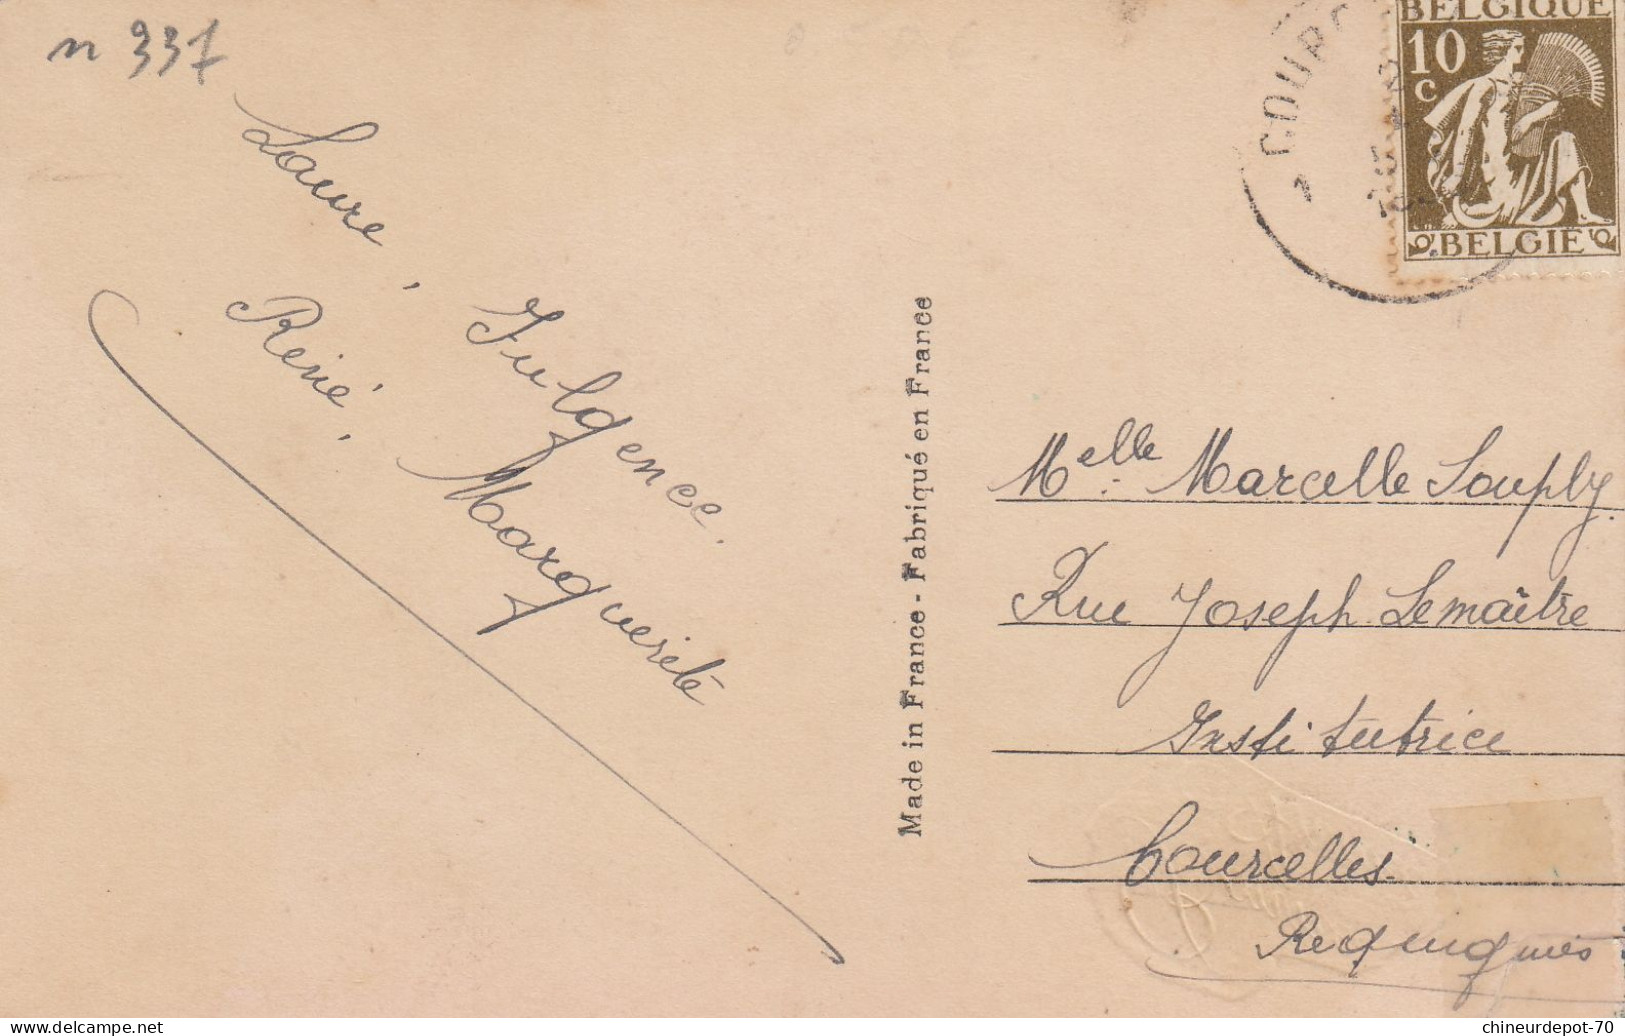 n 337
Laure,
Fulgence.
René,
Marguerite
Made in France - Fabriqué en France
COURC
1
BELGIQUE
10
C
BELGIE
Melle Marcelle Souply.
Rue Joseph Lemaître
Institutrice
Courcelles
chineurdepot-70